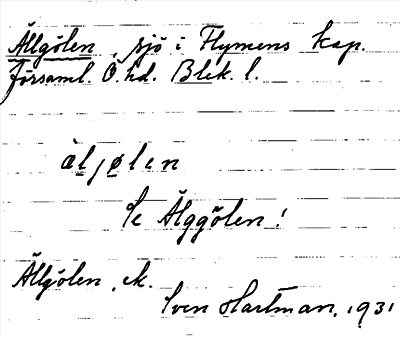 Ällgölen, sjö i Flymens kap.
församl. Ö. hd. Blek. l.
àljølen
Se Älggölen!
Ällgölen, ek.
Sven Hartman, 1931